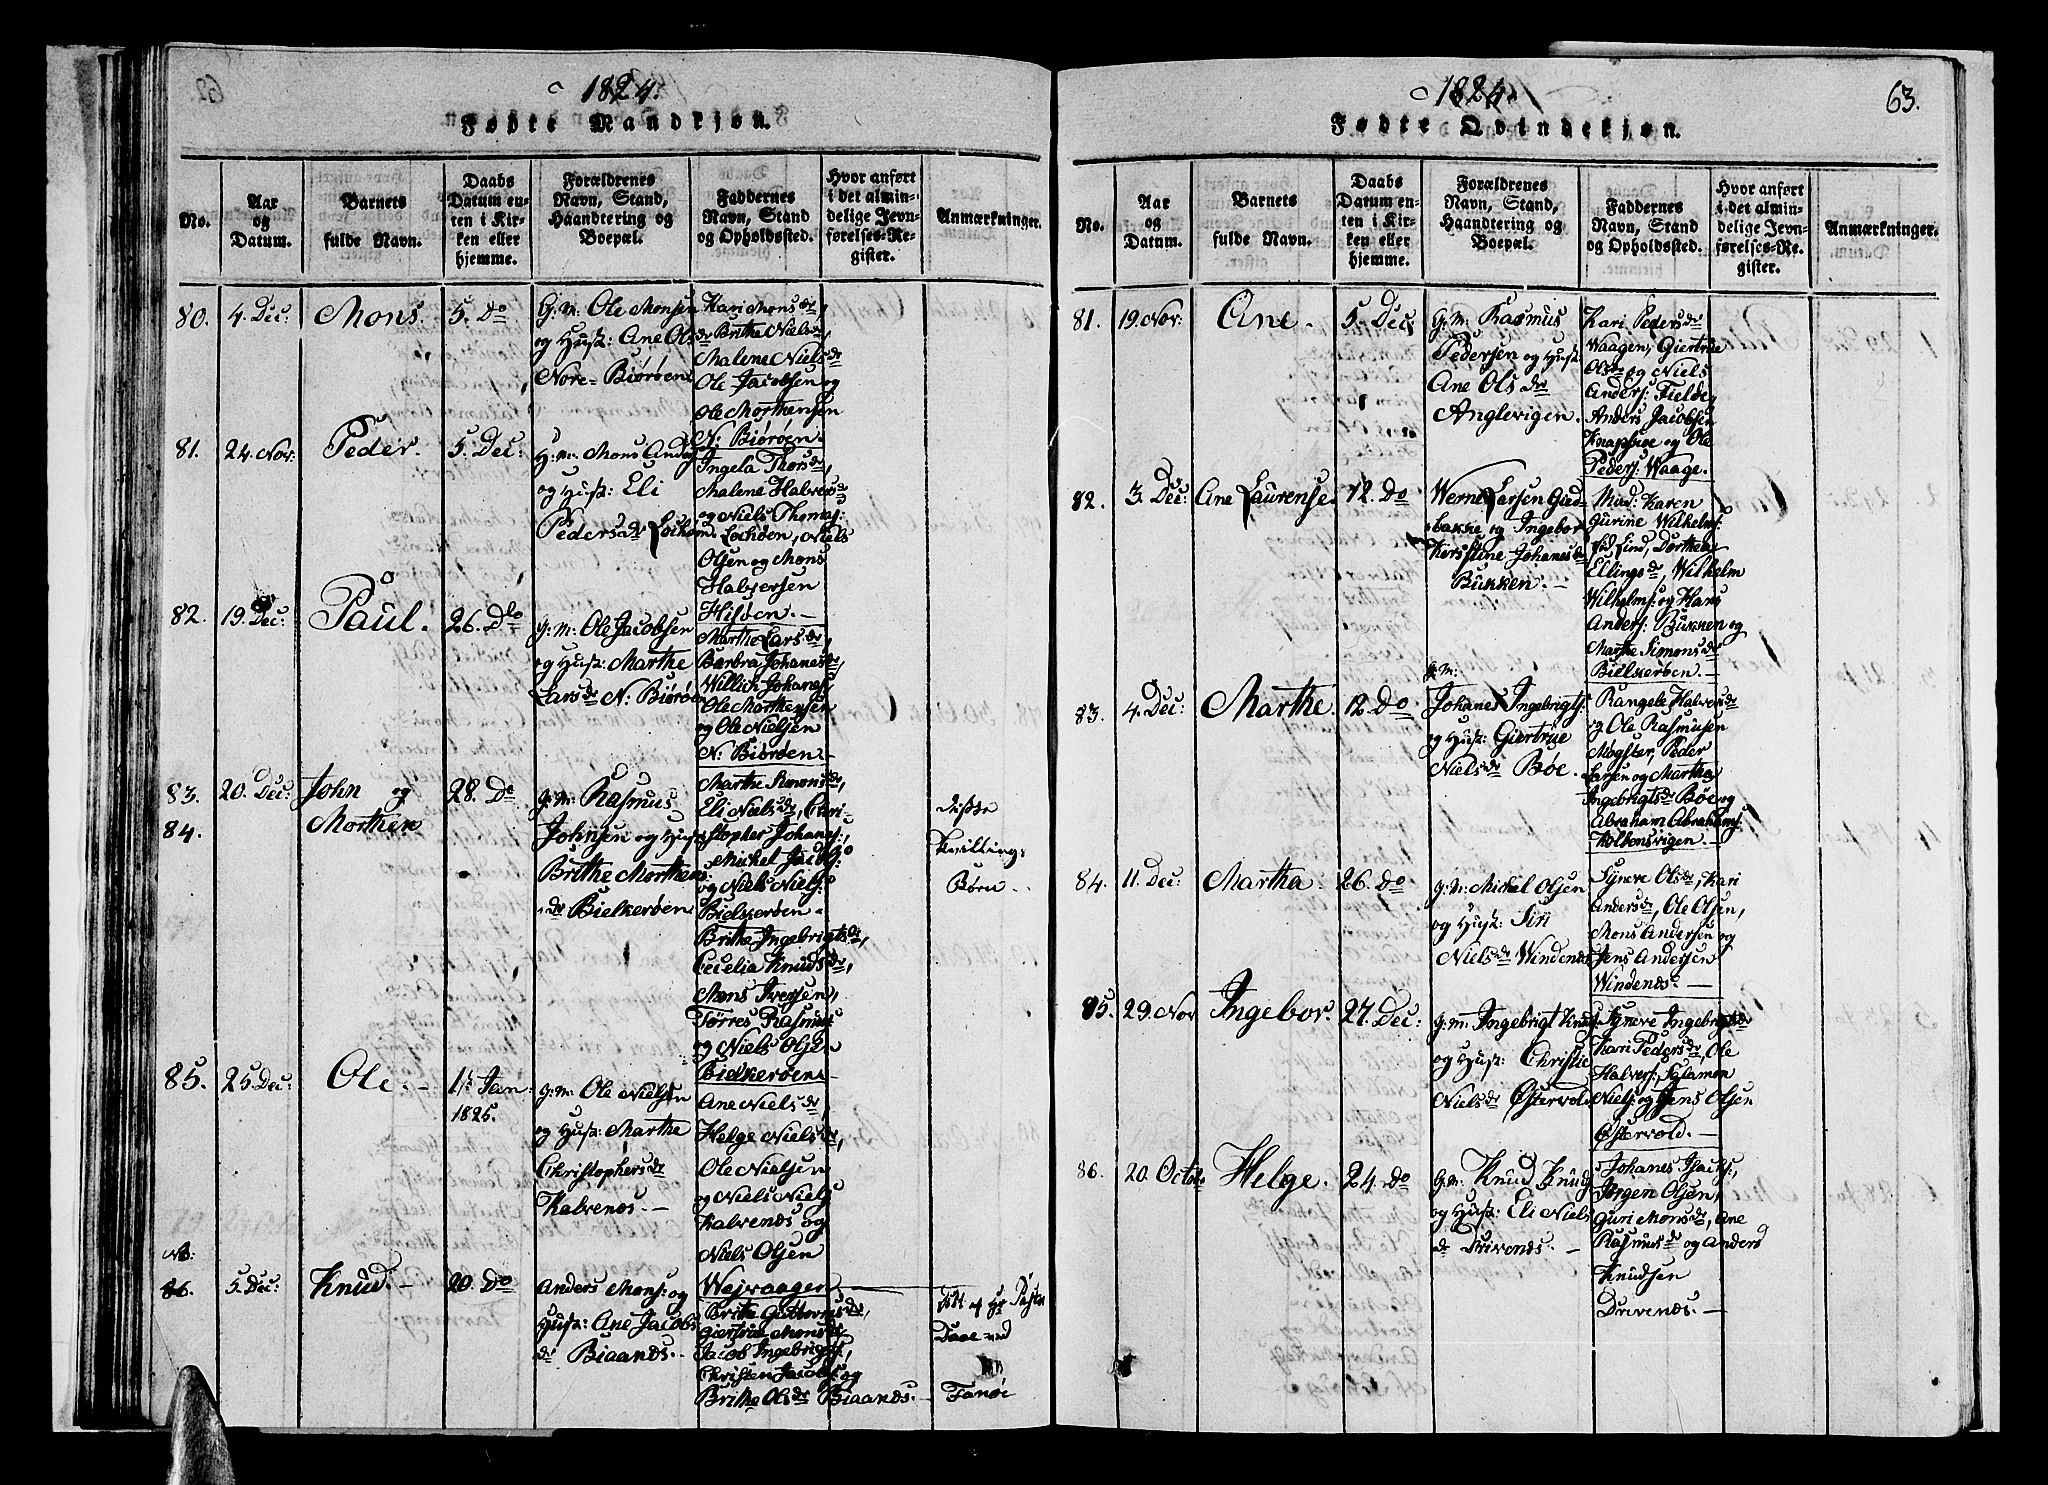 1824.
Fødte Mandkjøn.
No.
Aar
og
Datum.
Barnets
fulde Navn.
Daabs
Datum en-
ten i Kir-
ken eller
hjemme.
Forældrenes
Navn, Stand,
Haandtering og
Boepæl.
Faddernes
Navn, Stand
og Opholdssted.
Hvor anført
i det almin-
delige Jevn-
førelses-Re-
gister.
Anmærkninger.
80.
4. Dec:
Mons.
5. Do
G: M: Ole Monsen
og Hust: Ane Ols dr
Nore-Biørøen
Kari Mons dr,
Brithe Niels dr
Malene Niels dr
Ole Jacobsen og
Ole Morthensen
N: Biørøen.
81.
24. Nov:
Peder.
5. Dec:
G: M: Mons Anders
og Hust: Eli
Peders dr Lochøen
Ingela Thors dr,
Malene Halvers dr
og Niels Thomas:
Lochøen, Niels
Olsen og Mons
Halversen
Hisøen. -
82.
19. Dec:
Paul.
26. Do
G: M: Ole Jacobsen
og Hust: Marthe
Lars dr N: Biørøen
Marthe Lars dr,
Barbra Johanes dr,
Willich Johanes:
Ole Morthensen
og Ole Nielsen
N: Biørøen. -
83.
84.
20. Dec:
John og
Morthen
28. Do
G: M: Rasmus
Johnsen og Hust:
Brithe Morthens
dr Bielkerøen
Marthe Simons dr,
Eli Niels dr, Chri-
stopher Johans:,
Mickel Jacobs:
og Niels Niels:
Bielkerøen.
Brithe Ingebrigts dr,
Cecelia Knuds dr,
Mons Iversen,
Tørres Rasmus:
og Niels Olsen
Bielkerøen. -
disse
tvilling:
Børn -
85.
25. Dec:
Ole. -
1ste Jan:
1825.
G: M: Ole Nielsen
og Hust: Marthe
Christophers dr
Kalvenæs. -
Ane Niels dr,
Helge Niels dr,
Ole Nielsen
og Niels Niels:
Kalvenæs og
Niels Olsen
Wejvaagen
86.
5. Dec:
Knud. -
20. Do
Anders Mons: og
Hust: Ane Jacobs
dr Biaanæs. -
Brithe Guttorms dr,
Giertrue Mons dr
Jacob Ingebrigts:
Christen Jacobs: og
Brithe Ols dr Biaanæs. -
af Hr
ved
Fanøe
1824.
63.
Fødte Qvindekjøn.
No.
Aar
og
Datum.
Barnets
fulde Navn.
Daabs
Datum en-
ten i Kir-
ken eller
hjemme.
Forældrenes
Navn, Stand,
Haandtering og
Boepæl.
Faddernes
Navn, Stand
og Opholdssted.
Hvor anført
i det almin-
delige Jevn-
førelses-Re-
gister.
Anmærkninger.
81.
19. Nov:
Ane.
5. Dec:
G: M: Rasmus
Pedersen og Hust:
Ane Ols dr
Anglevigen.
Kari Peders dr
Waagen, Giertrue
Ols dr og Niels
Anders: Fielde,
Anders Jacobsen
Knapskoe og Ole
Peders: Waage.
82.
3. Dec:
Ane Laurense.
12. Do
Werne Larsen Gied-
bakke og Ingebor
Kirstine Johanes dr
Bukken. -
Mad: Karen
Gurine Wilhelms:
Dorthea
Ellings dr, Wilhelm
Wilhelms: og Hans
Anders: Bukken og
Marthe Simons dr
Bielkerøen. -
83.
4. Dec:
Marthe.
12. Do
G: M:
Johanes Ingebrigts:
og Hust: Giertrue
Niels dr Bøe.
Rangele Halvers dr
og Ole Rasmusen
Møgster, Peder
Larsen og Martha
Ingebrigts dr Bøe og
Abraham Abrahams:
Kolbensvigen. -
84.
11. Dec:
Martha.
26. Do
G: M: Mickel Olsen
og Hust: Siri
Niels dr Windenæs
Syneve Ols dr, Kari
Anders dr, Ole Olsen,
Mons Andersen og
Jens Andersen
Windenæs. -
85.
29. Nov
Ingebor.
27. Dec:
G: M: Ingebrigt Knuds:
og Hust: Christie
Niels dr Østervold
Syneve Ingebrigts dr
Kari Peders dr, Ole
Halvers:, Salamon
Niels: og Jens Olsen
Østervold. -
86.
20. Octob:
Helge.
24. Do
G: M: Knud Knuds:
og Hust: Eli Niels
dr Drivenæs. -
Johanes Isachs:,
Jørgen Olsen,
Guri Mons dr, Ane
Rasmus dr og Anders
Knudsen
Drivenæs. -